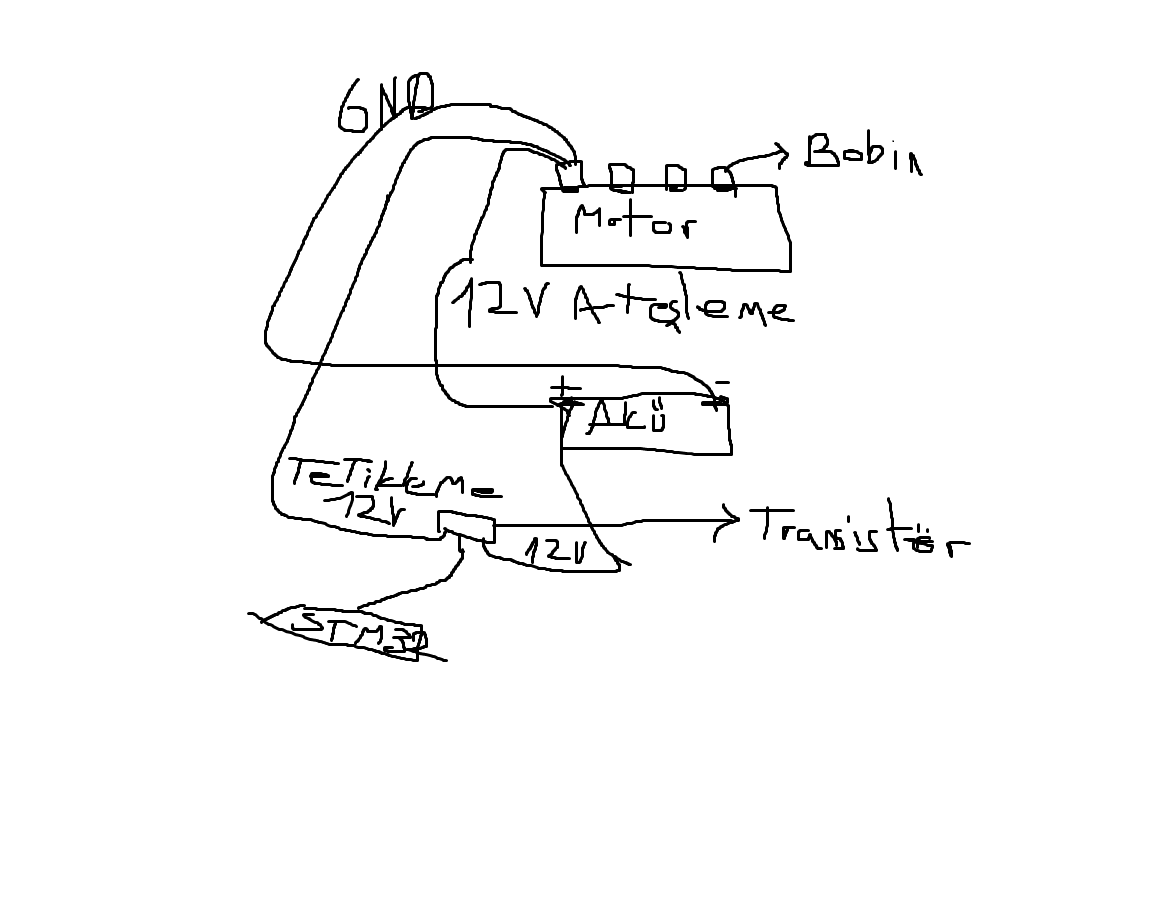 GND
Bobin
Motor
12V Ateşleme
+ -
Akü
TeTikleme
12V
Transistör
12V
STM32